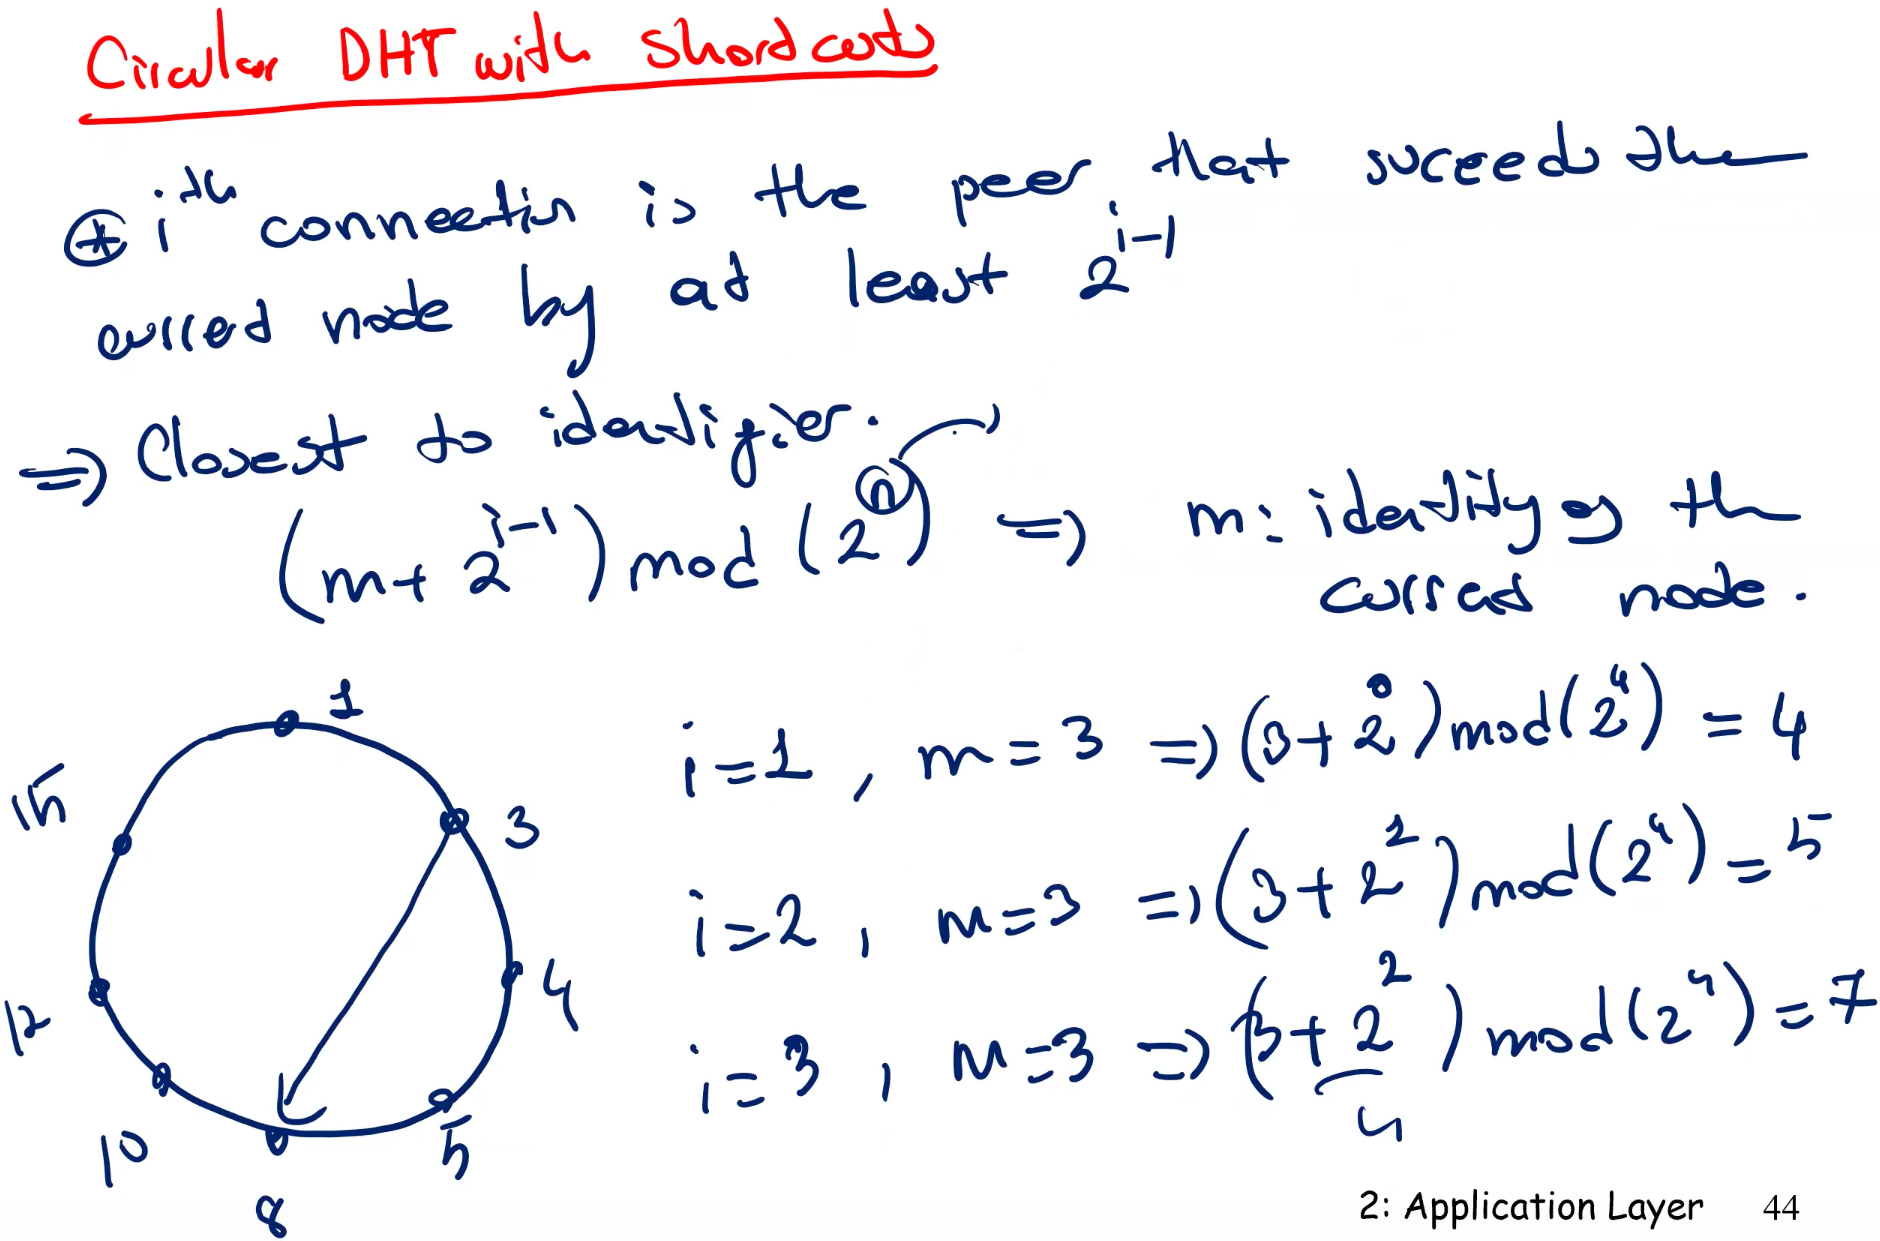 Circular DHT with Shortcuts
⊛ iᵗʰ connection is the peer that suceeds the
current node by at least 2^(i-1)
=> Closest to identifier.
(m + 2^(i-1)) mod (2^n) => m: identity of the
current node.
1
15
3
12
4
10
5
8
i=1, m=3 => (3+2^0) mod (2^4) = 4
i=2, m=3 => (3+2^1) mod (2^4) = 5
i=3, m=3 => (3+2^2) mod (2^4) = 7
4
2: Application Layer 44